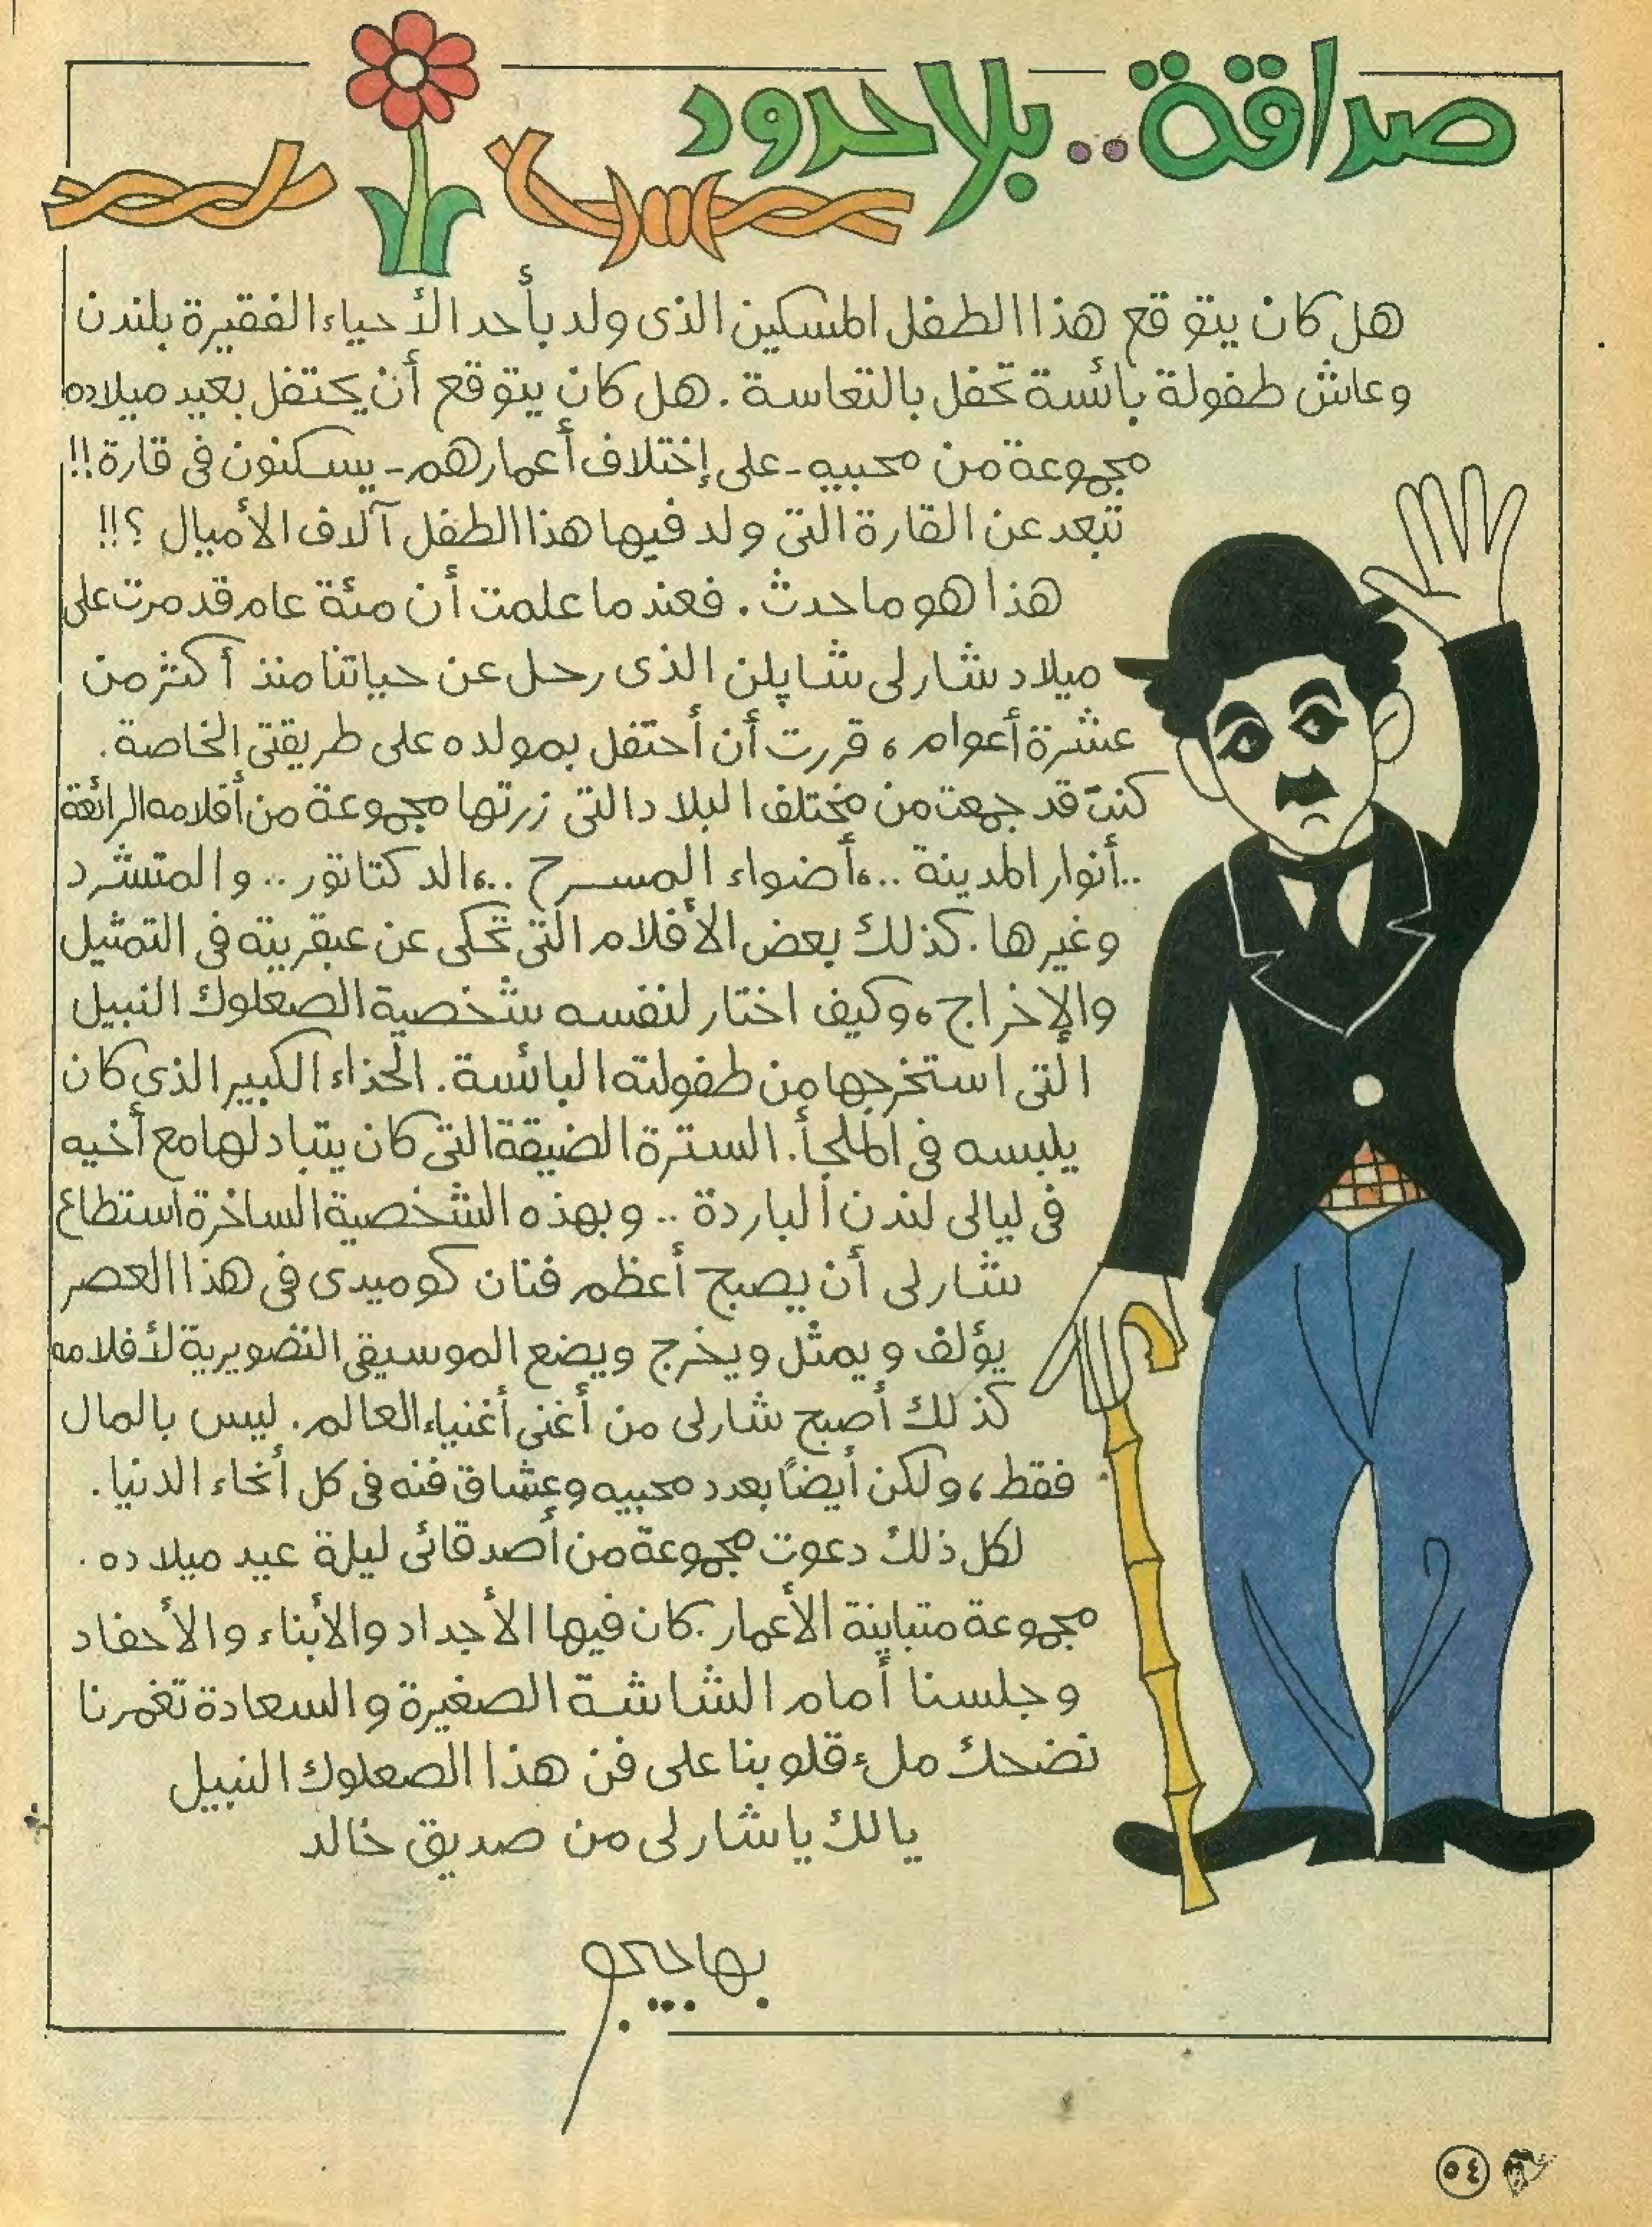 صداقة.. بلا حدود
هل كان يتوقع هذا الطفل المسكين الذى ولد بأحد الأحياء الفقيرة بلندن
وعاش طفولة بائسة تحفل بالتعاسة. هل كان يتوقع أن يحتفل بعيد ميلاده
مجموعة من محبيه - على إختلاف أعمارهم - يسكنون فى قارة!!
تبعد عن القارة التى ولد فيها هذا الطفل آلاف الأميال ؟!!
هذا هو ماحدث. فعندما علمت أن مئة عام قد مرت على
ميلاد شارلى شاپلن الذى رحل عن حياتنا منذ أكثر من
عشرة أعوام، قررت أن أحتفل بمولده على طريقتى الخاصة.
كنت قد جمعت من مختلف البلاد التى زرتها مجموعة من أفلامه الرائعة
..أنوار المدينة ..،أضواء المسرح ..،الدكتاتور .. والمتشرد
وغيرها. كذلك بعض الأفلام التى تحكى عن عبقريته فى التمثيل
والإخراج، وكيف اختار لنفسه شخصية الصعلوك النبيل
التى استخرجها من طفولته البائسة. الحذاء الكبير الذى كان
يلبسه فى الملجأ. السترة الضيقة التى كان يتبادلها مع أخيه
فى ليالى لندن الباردة .. وبهذه الشخصية الساخرة استطاع
شارلى أن يصبح أعظم فنان كوميدى فى هذا العصر
يؤلف ويمثل ويخرج ويضع الموسيقى التصويرية لأفلامه
كذلك أصبح شارلى من أغنى أغنياء العالم. ليس بالمال
فقط، ولكن أيضاً بعدد محبيه وعشاق فنه فى كل أنحاء الدنيا.
لكل ذلك دعوت مجموعة من أصدقائى ليلة عيد ميلاده.
مجموعة متباينة الأعمار. كان فيها الأجداد والأبناء والأحفاد
وجلسنا أمام الشاشة الصغيرة والسعادة تغمرنا
نضحك ملء قلوبنا على فن هذا الصعلوك النبيل
يالك ياشارلى من صديق خالد
٥٤